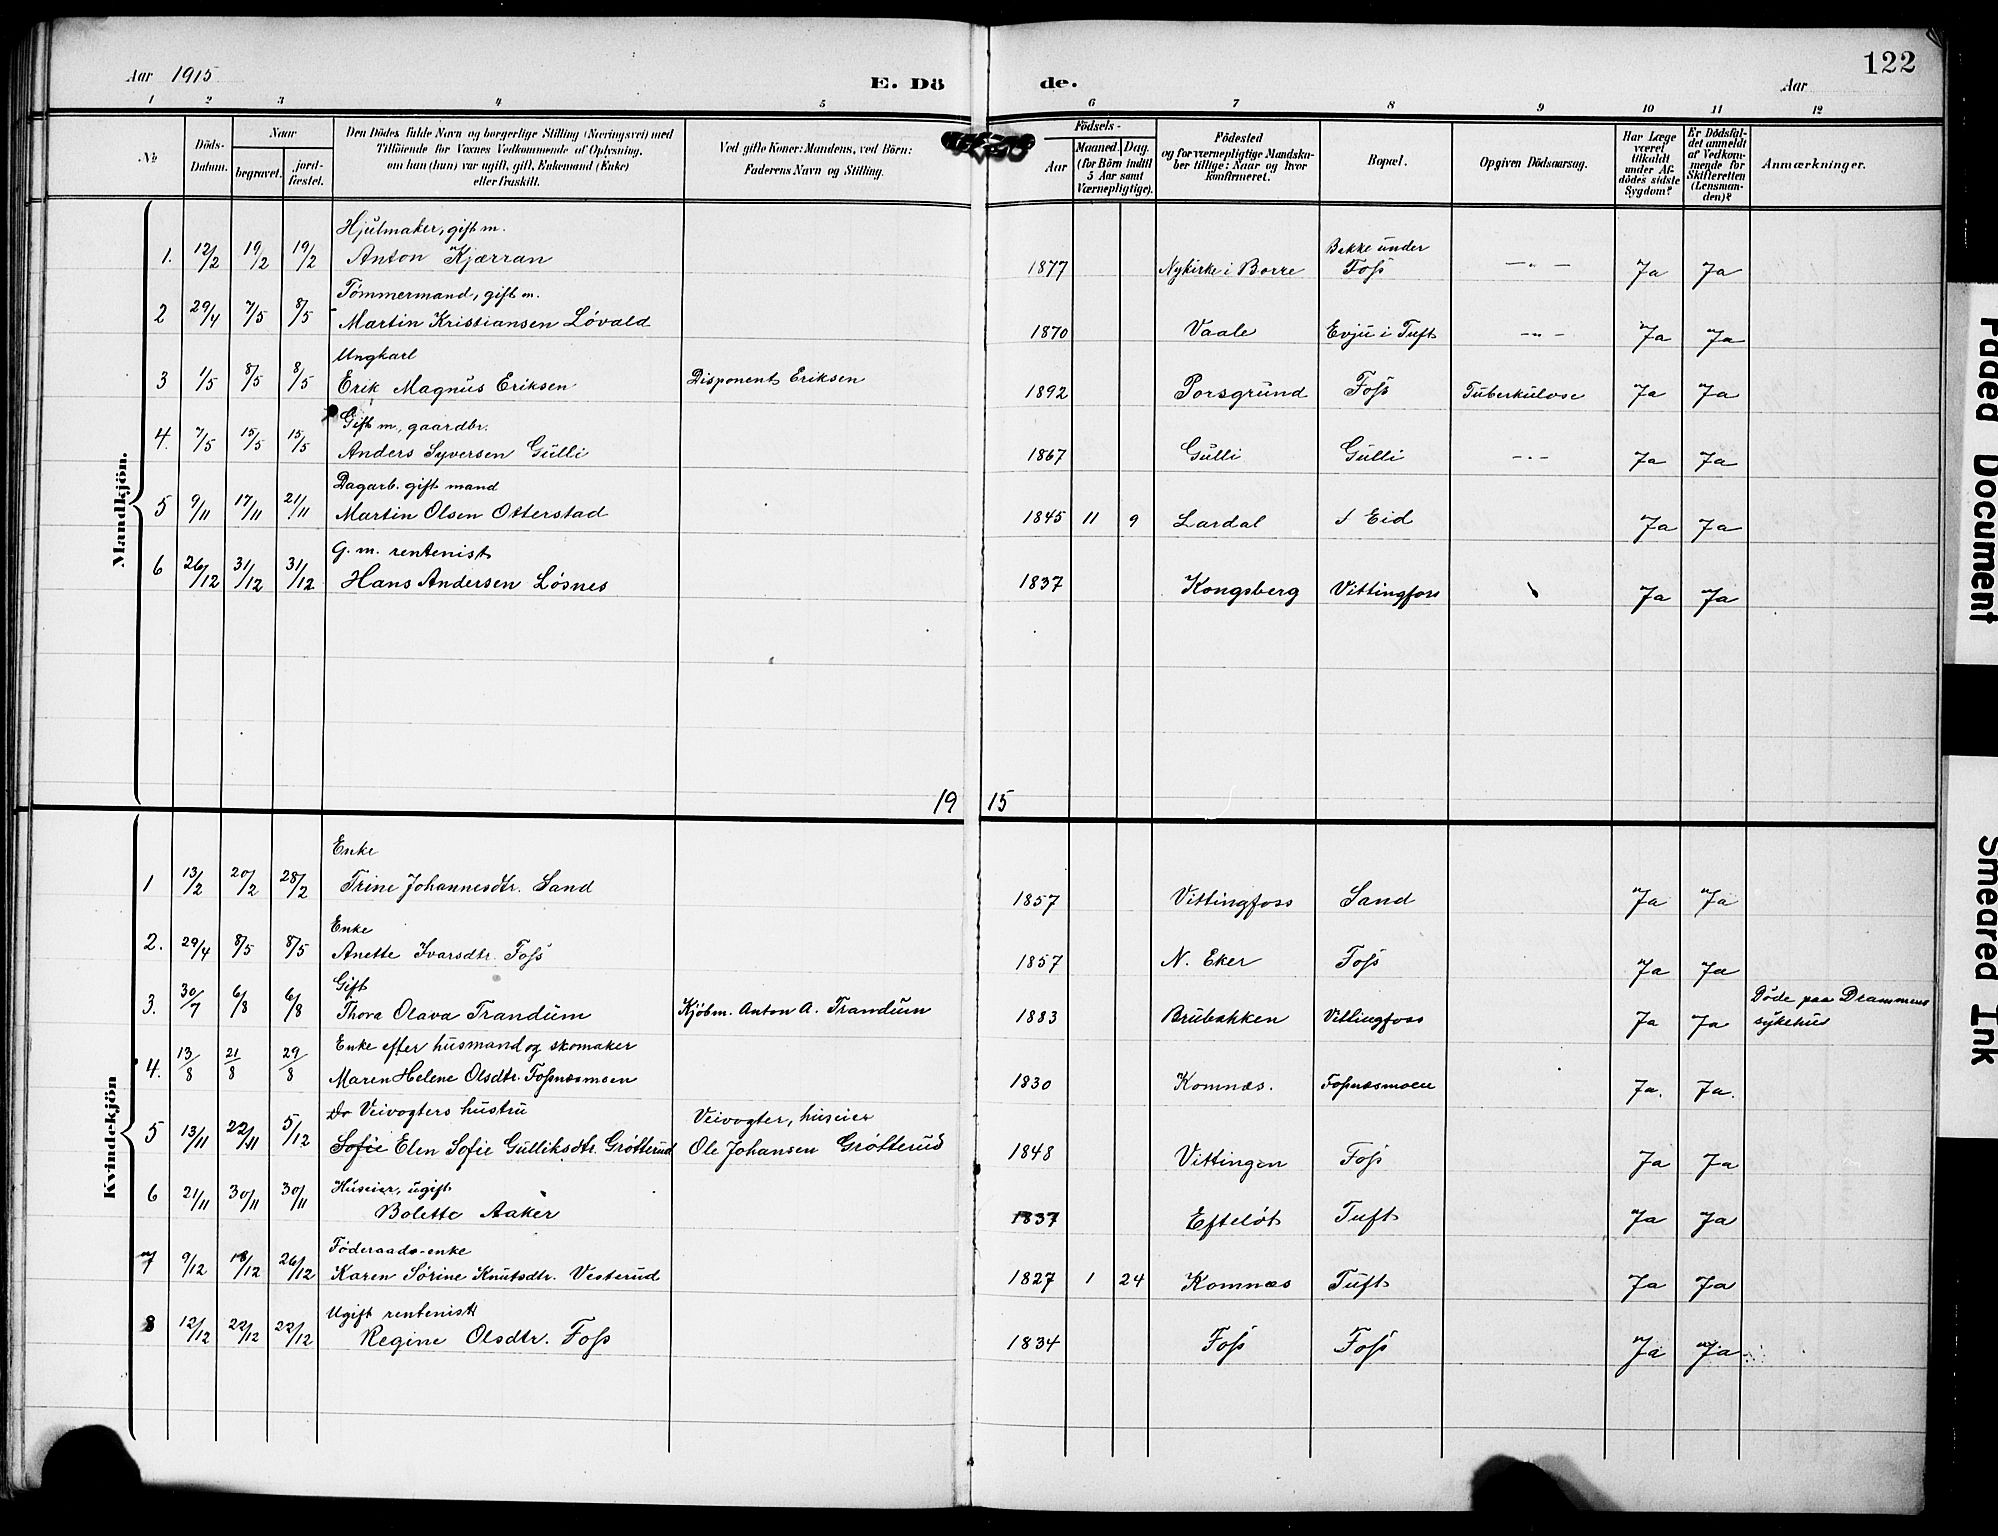 122
Aar 1915 E. Dö de. Aar
1 2 3 4 5 6 7 8 9 10 11 12
№ Döds-Datum. Naar begravet. jord-fæstet. Den Dödes fulde Navn og borgerlige Stilling (Næringsvei) med Tilföiende for Voxnes Vedkommende af Oplysning, om han (hun) var ugift, gift, Enkemand (Enke) eller fraskilt. Ved gifte Koner: Mandens, ved Börn: Faderens Navn og Stilling. Födsels- Aar Maaned. Dag. (for Börn indtil 5 Aar samt Værnepligtige). Födested og for værnepligtige Mandska-ber tillige: Naar og hvor konfirmeret. Bopæl. Opgiven Dödsaarsag. Har Læge været tilkaldt under Af-dödes sidste Sygdom? Er Dödsfal-det anmeldt af Vedkom-mende for Skifteretten (Lensman-den)? Anmærkninger.
Mandkjön.
Hjulmaker, gift m. Bakke under
1. 12/2 19/2 19/2 Anton Kjærran 1877 Nykirke i Borre Foss —„— Ja Ja
Tömmermand, gift m.
2 29/4 7/5 8/5 Martin Kristiansen Lövald 1870 Vaale Evju i Tuft —„— Ja Ja
Ungkarl
3 1/5 8/5 8/5 Erik Magnus Eriksen Disponent Eriksen 1892 Porsgrund Foss Tuberkulose Ja Ja
Gift m., gaardbr.
4. 7/5 15/5 15/5 Anders Syversen Gulli 1867 Gulli Gulli —„— Ja Ja
Dagarb. gift mand
5 9/11 17/11 21/11 Martin Olsen Otterstad 1845 11 9 Lardal S Eid Ja Ja
G. m. rentenist
6 26/12 31/12 31/12 Hans Andersen Lösnes 1837 Kongsberg Vittingfoss Ja Ja
19 15
Kvindekjön
Enke
1 13/2 20/2 28/2 Trine Johannesdtr. Sand 1857 Vittingfoss Sand Ja Ja
Enke
2. 29/4 8/5 8/5 Anette Ivarsdtr. Foss 1857 N. Eker Foss Ja Ja
Gift Döde paa Drammens
3. 30/7 6/8 6/8 Thora Olava Trandum Kjöbm. Anton A. Trandum 1883 Brubakken Vittingfoss Ja Ja sykehus
Enke efter husmand og skomaker
4. 13/8 21/8 29/8 Maren Helene Olsdtr. Fossnæsmoen 1830 Komnæs. Fossnæsmoen Ja. Ja.
Do Veivogters hustru Veivogter, huseier
5 13/11 22/11 5/12 Sofie Elen Sofie Gulliksdtr. Grötterud Ole Johansen Grötterud 1848 Vittingen Foss Ja Ja
Huseier, ugift
6 21/11 30/11 30/11 Bolette Aaker 1837 Efteløt Tuft Ja Ja
Föderaads-enke
7 9/12 18/12 26/12 Karen Sörine Knutsdtr. Vesterud 1827 1 24 Komnæs Tuft Ja Ja
Ugift rentenist
8 12/12 22/12 22/12 Regine Olsdtr. Foss 1834 Foss Foss Ja Ja
Faded Document
Smeared Ink